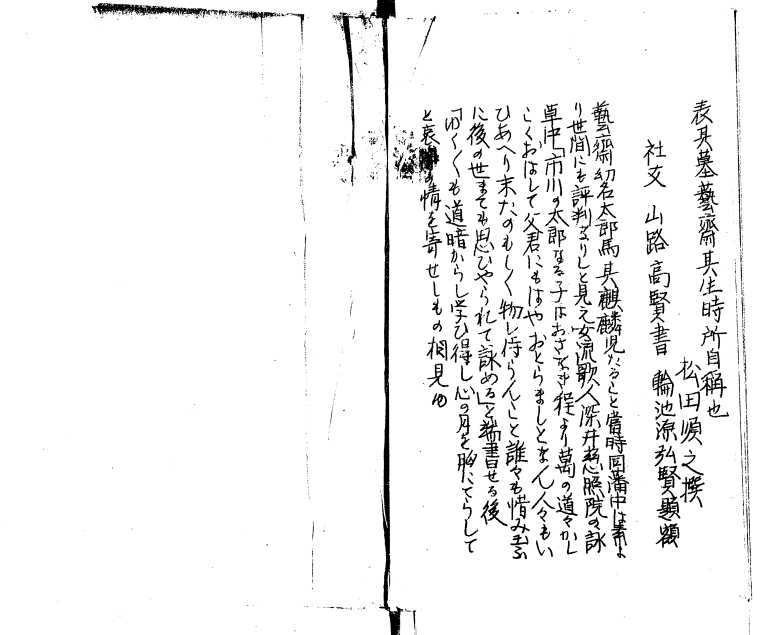 表其墓藝齋其生時所自稱也
松田順之撰
社友 山路高賢書 輪池源弘賢題額
藝齋幼名太郎馬其麒麟児たること當時同藩中は素よ
り世間にも評判なりしと見え女流歌人深井慈照院の詠
草中「市川の太郎なる子はおさなき程より萬の道々かし
こくおはして父君にもはやおとらましとなん人々もい
ひあへり末たのもしく物し侍らんこと誰々も惜み玉ふ
に後の世まても思ひやられて詠める」と端書せる後
「ゆくくも道暗からし学ひ得し心の月を胸にてらして
と哀の情を寄せしもの相見ゆ